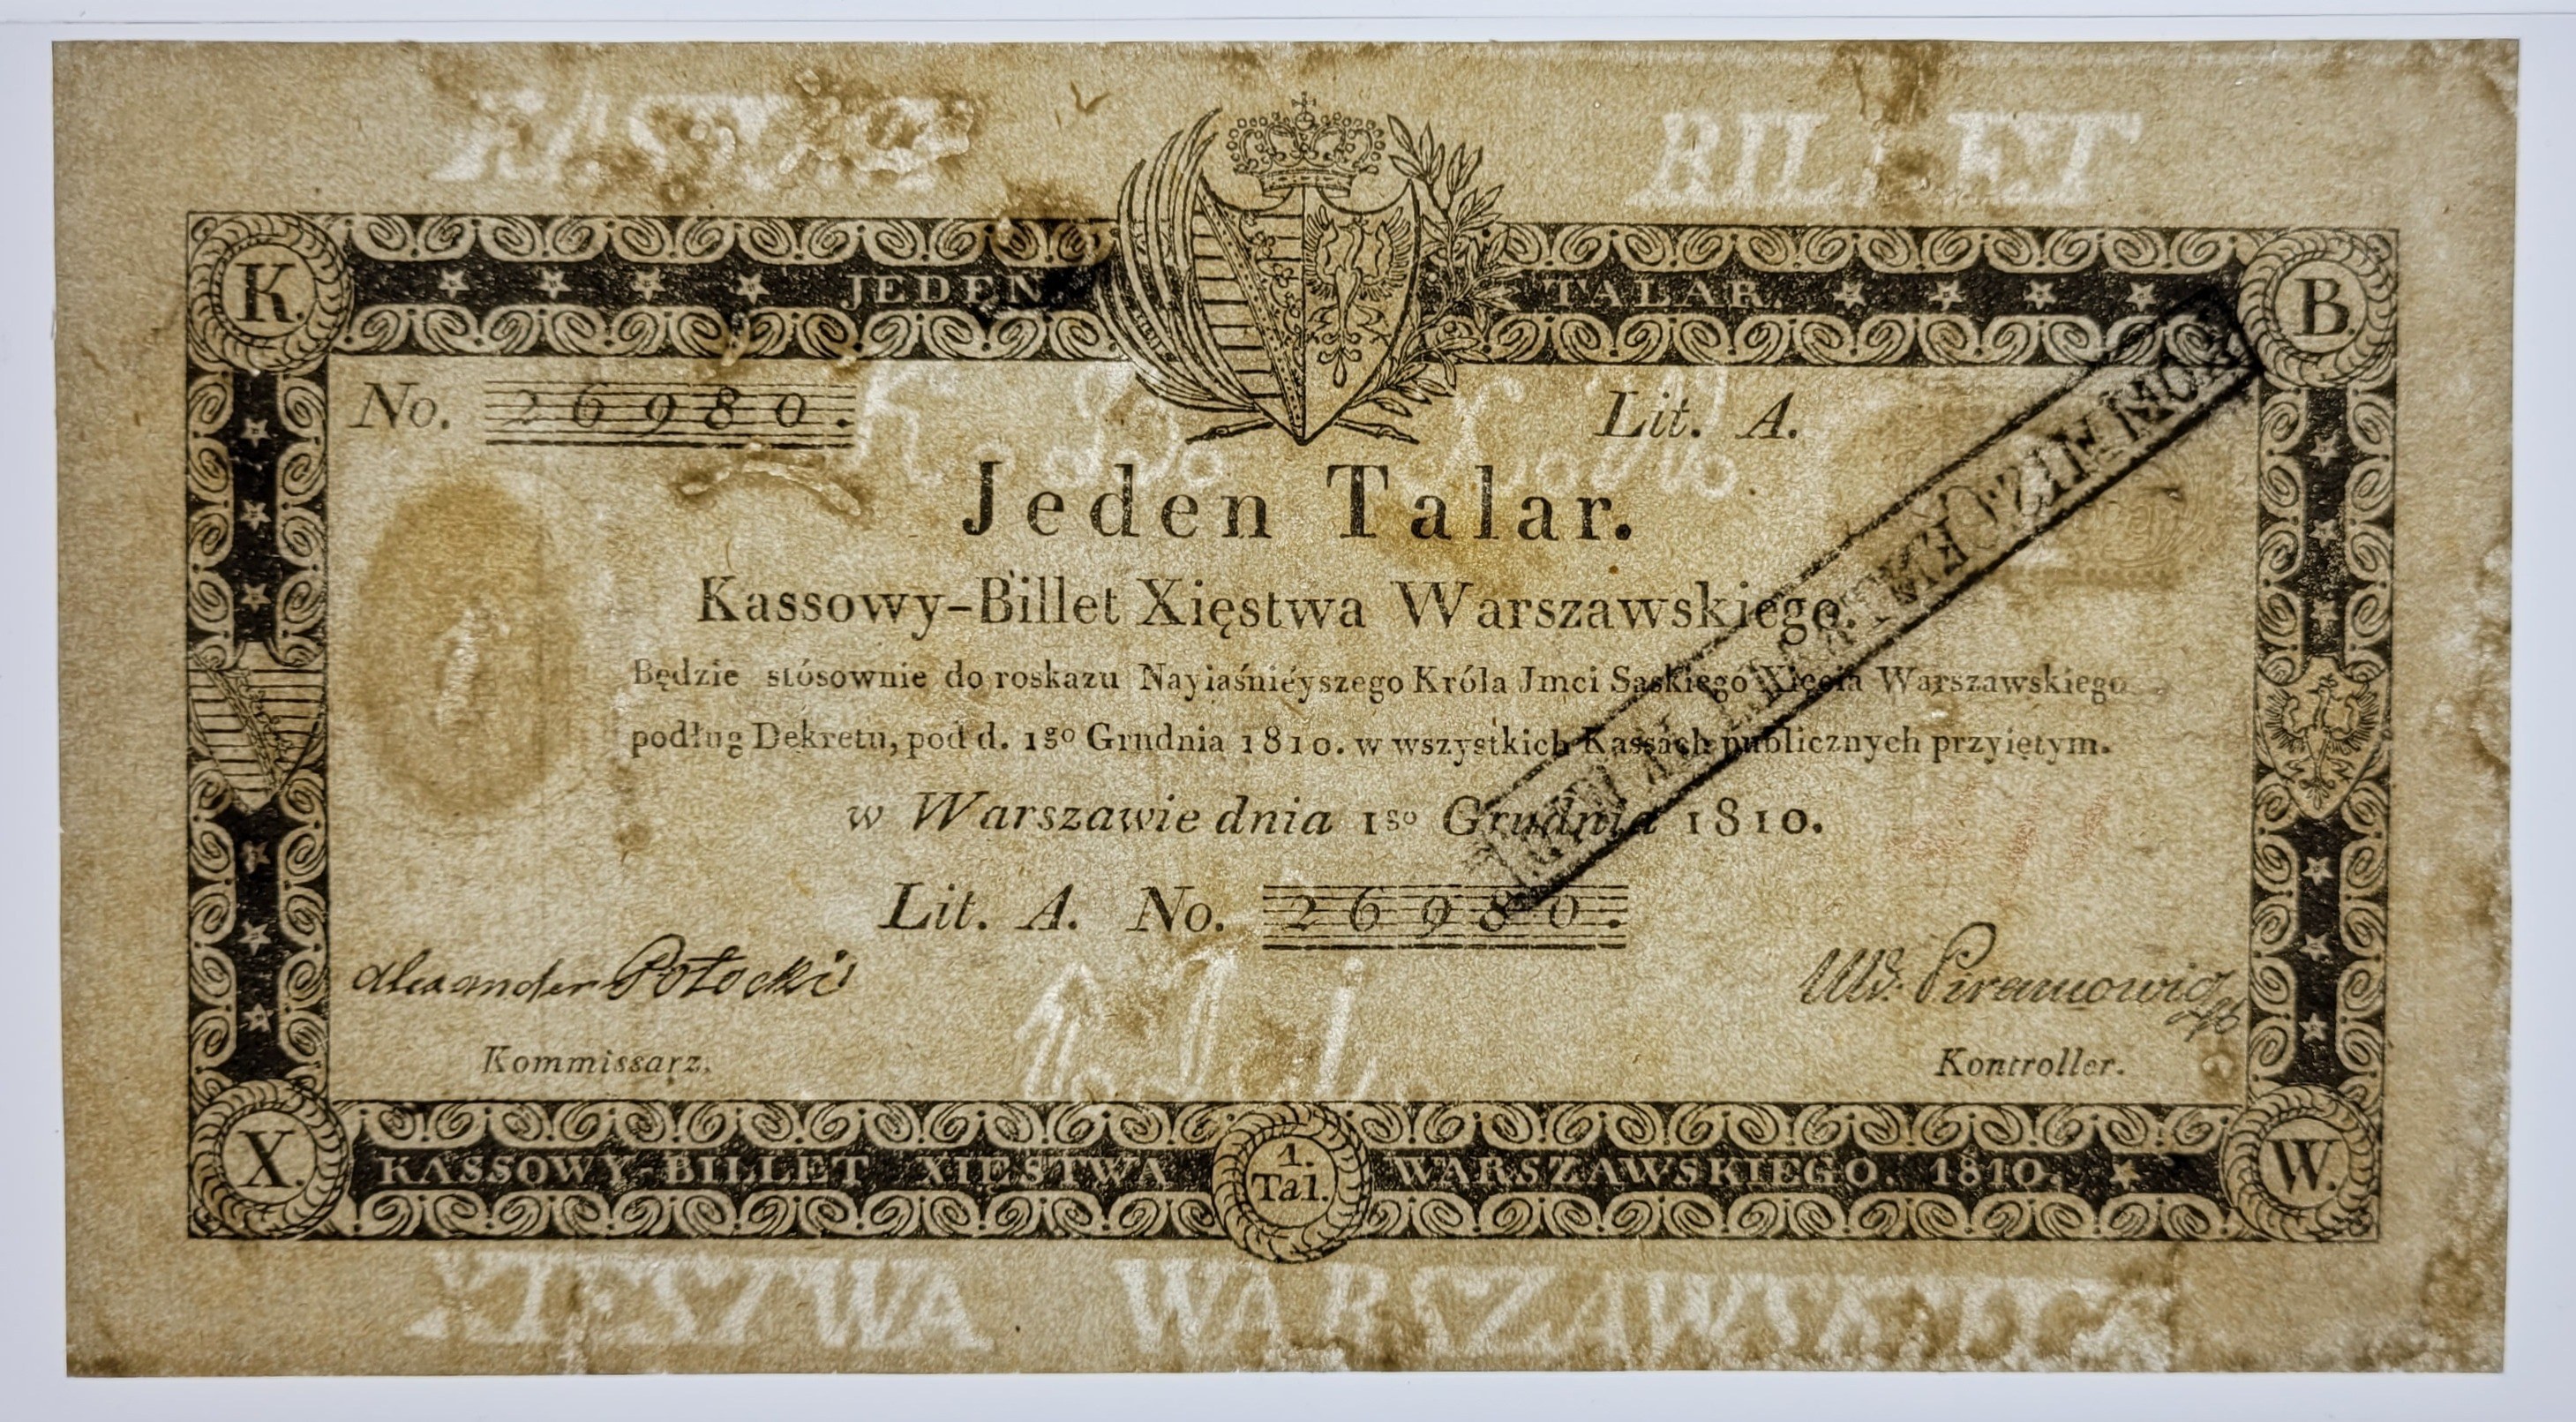 BILLET
K. B.
JEDEN. TALAR.
No. 26980. Lit. A.
Jeden Talar.
Kassowy-Billet Xięstwa Warszawskiego.
Będzie stósownie do roskazu Nayiaśniéyszego Króla Jmci Saskiego Xięcia Warszawskiego
podług Dekretu, pod d. 1go Grudnia 1810. w wszystkich Kassach publicznych przyiętym.
w Warszawie dnia 1go Grudnia 1810.
Lit. A. No. 26980.
Alexander Potocki Piramowicz
Kommissarz. Kontroller.
X. 1. Tal. W.
KASSOWY-BILLET XIĘSTWA WARSZAWSKIEGO. 1810.
WARSZAWSKIEGO